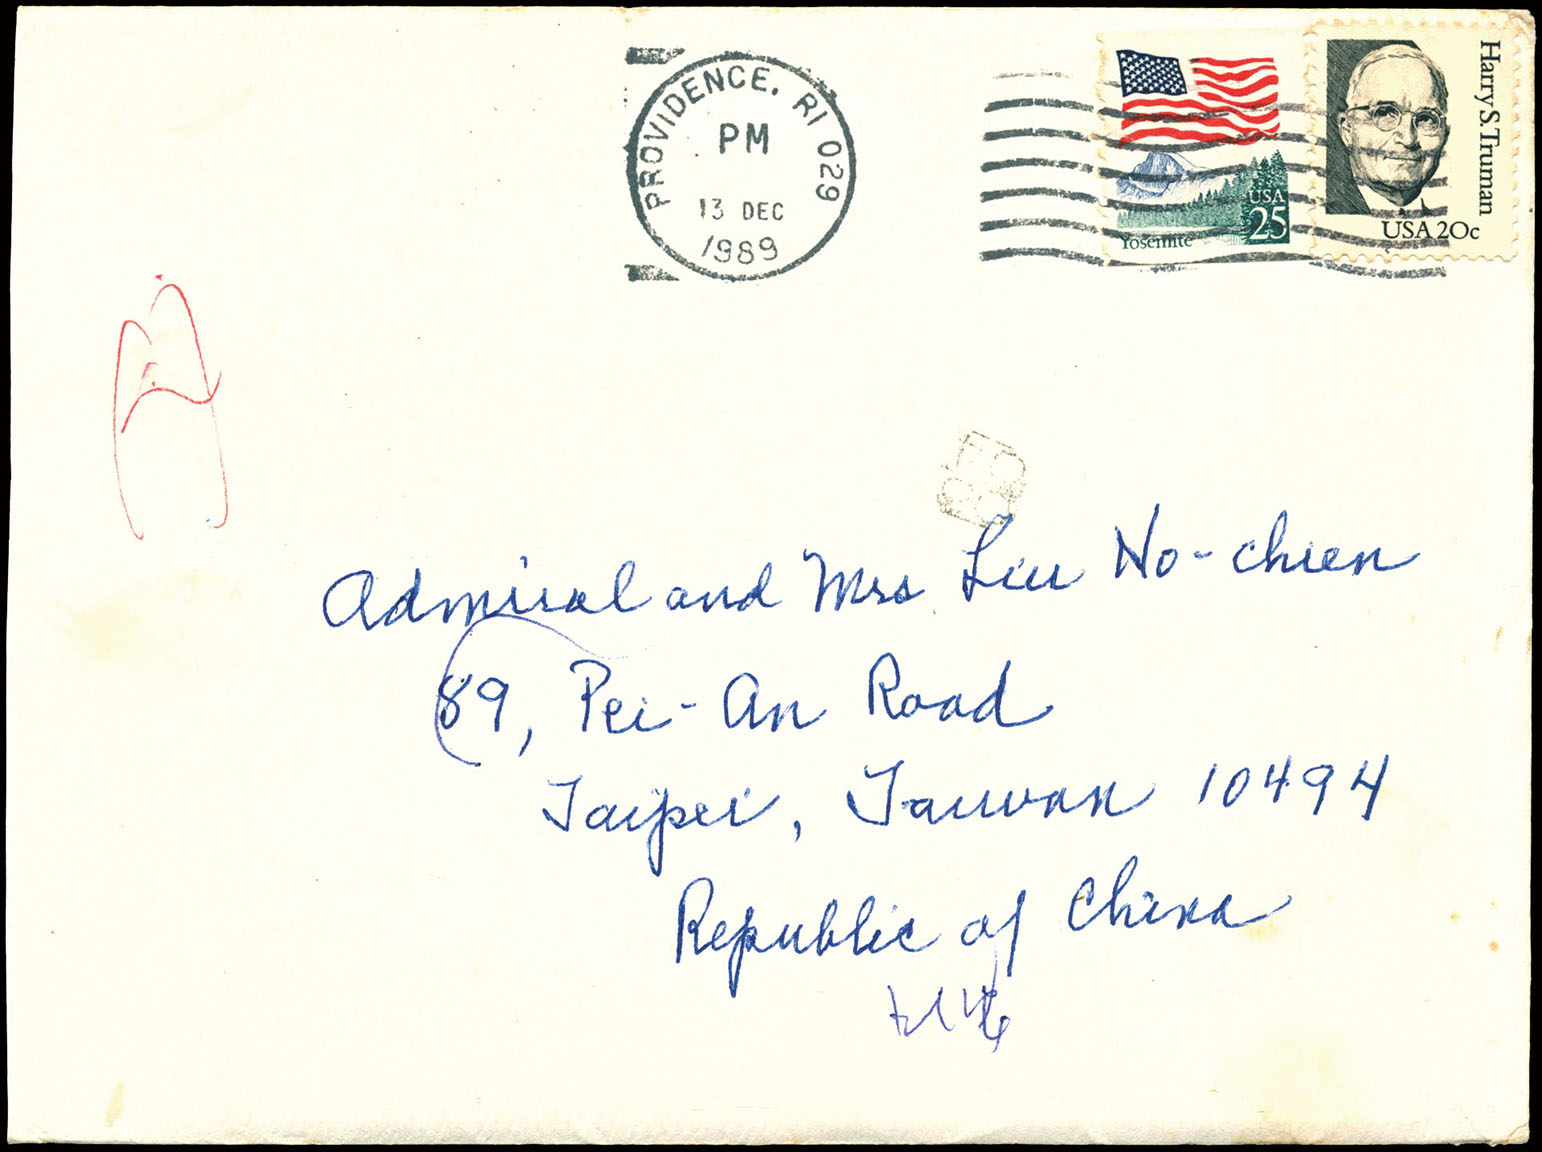 PROVIDENCE, RI 029
PM
13 DEC
1989
USA
25
Yosemite
Harry S. Truman
USA 20c
Admiral and Mrs Liu Ho-chien
89, Pei-An Road
Taipei, Taiwan 10494
Republic of China